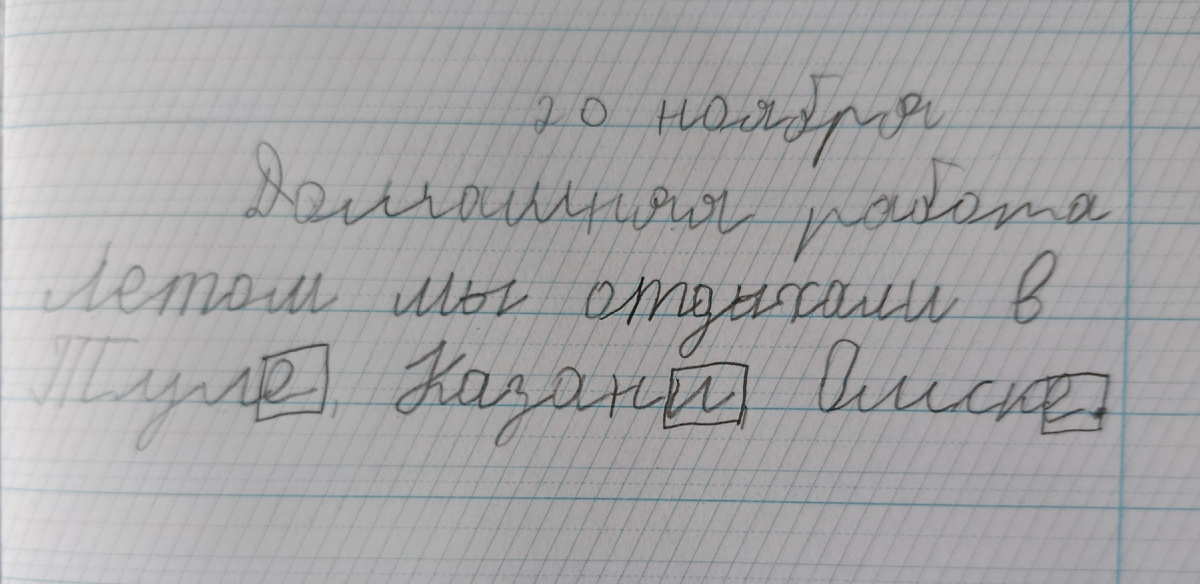 20 ноября
Домашняя работа
Летом мы отдыхали в
Туле, Казани, Омске.